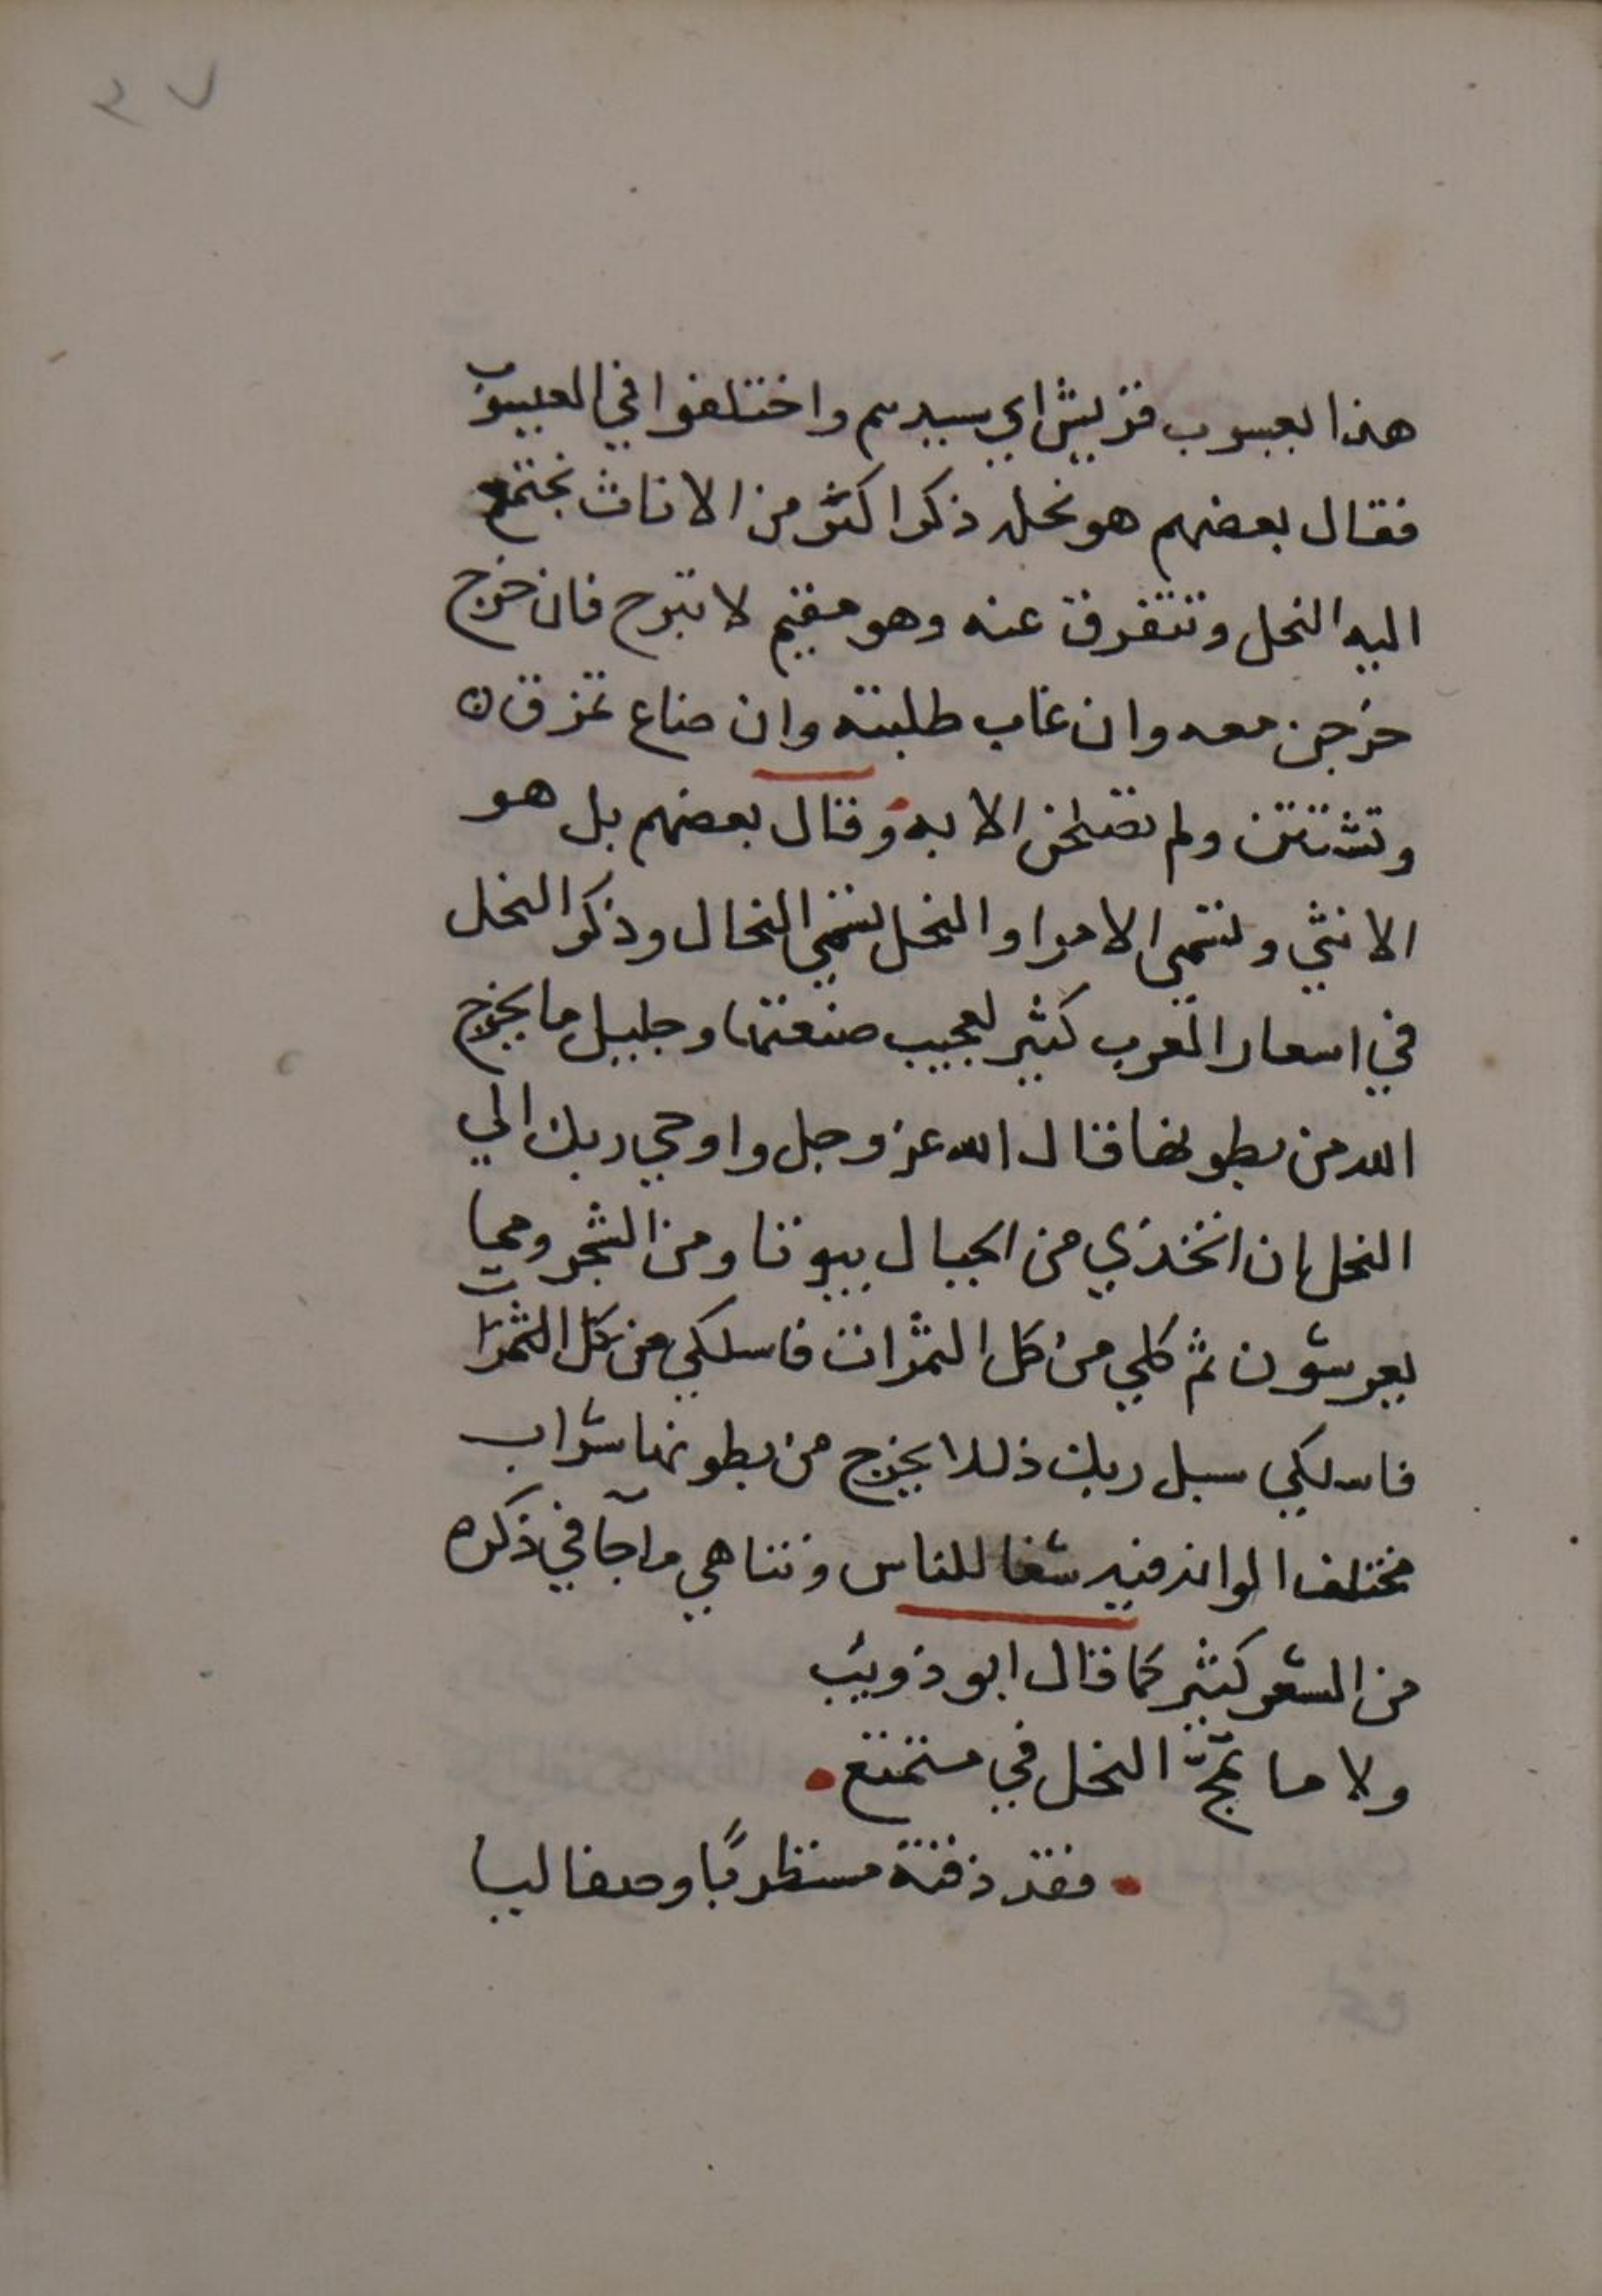 ٤٧
هذا يعسوب قريش اي سيدهم واختلفوا في اليعسوب
فقال بعضهم هو نحله ذكرا كثر من الاناث تجتمع
اليه النحل وتتفرق عنه وهو مقيم لا تبرح فان خرج
خرجن معه وان غاب طلبته وان ضاع تمزقن
وتشتتن ولم تصلحن الا به وقال بعضهم بل هو
الانثي وتسمي الام او النحل تسمي النحال وذكر النحل
في اسعار العرب كثير لعجيب صنعتها وجليل ما يخرج
الله من بطونها قال الله عز وجل واوحي ربك الي
النحل ان اتخذي من الجبال بيوتا ومن الشجر ومما
يعرشون ثم كلي من كل الثمرات فاسلكي من كل الثمرات
فاسلكي سبل ربك ذللا يخرج من بطونها شراب
مختلف الوانه فيه شفا للناس وتناهي ما جآ في ذكره
من الشعر كثير كما قال ابو ذويب
ولا ما تمجّ النحل في متمنع
فقد ذقته مستظرفًا وصفا ليا